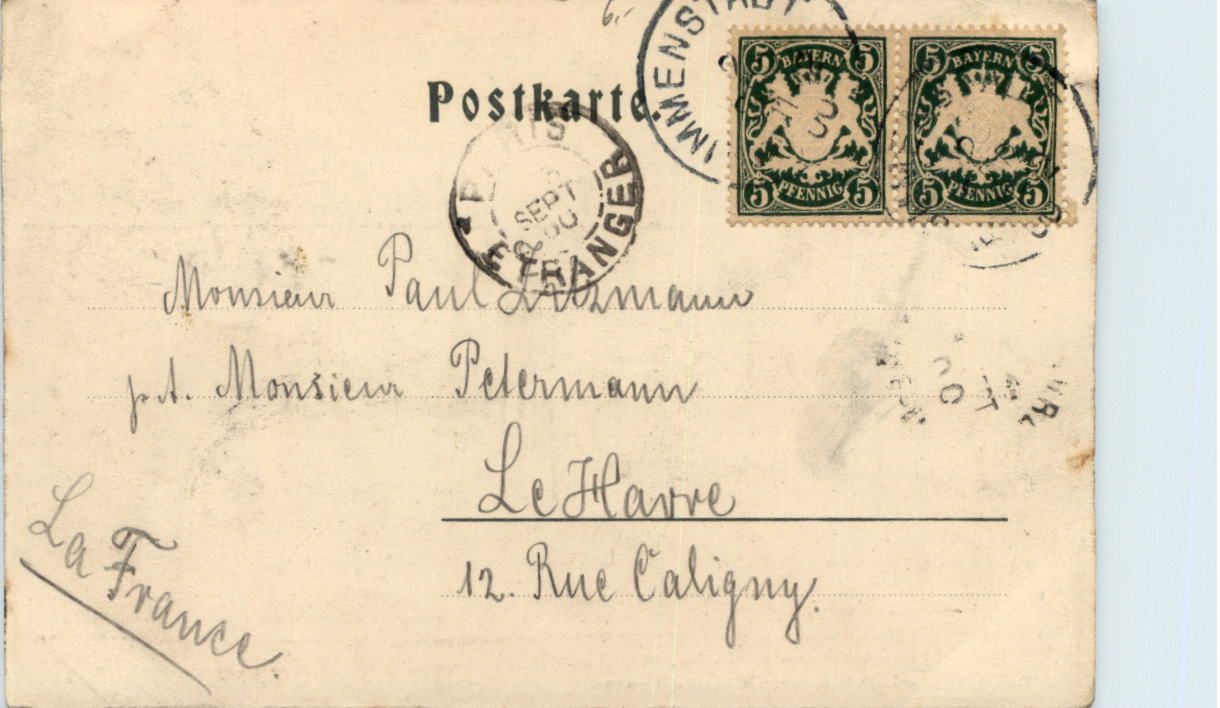 6.-
Postkarte.
IMMENSTADT
5 BAYERN 5
5 PFENNIG 5
5 BAYERN 5
5 PFENNIG 5
PARIS
SEPT
00
ETRANGER
Monsieur Paul Litzmann
p.A. Monsieur Petermann
Le Havre
12. Rue Caligny.
La France.